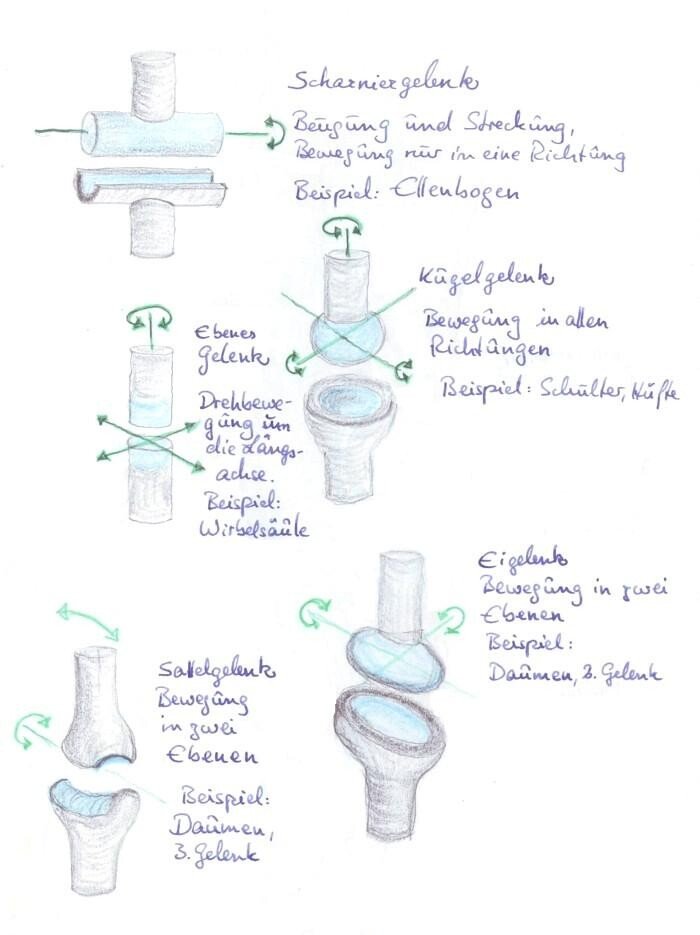 Scharniergelenk
Beugung und Streckung,
Bewegung nur in eine Richtung
Beispiel: Ellenbogen
Kugelgelenk
Bewegung in allen
Richtungen
Beispiel: Schulter, Hüfte
Ebenes
Gelenk
Drehbewe-
gung um
die Längs-
achse.
Beispiel:
Wirbelsäule
Eigelenk
Bewegung in zwei
Ebenen
Beispiel:
Daumen, 3. Gelenk
Sattelgelenk
Bewegung
in zwei
Ebenen
Beispiel:
Daumen,
3. Gelenk